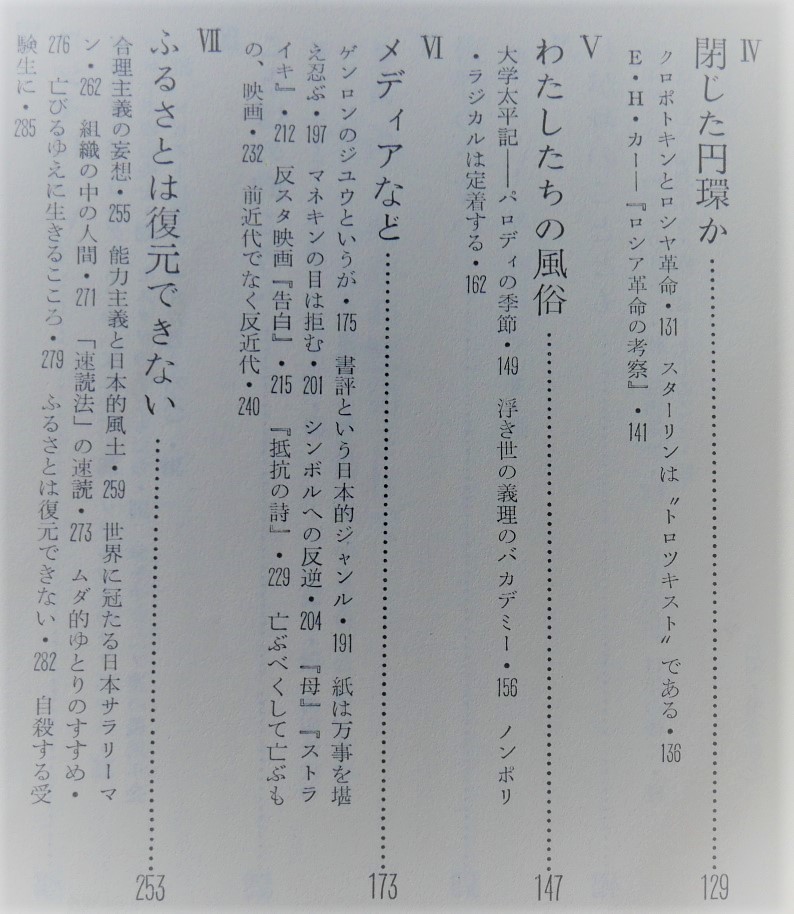 Ⅳ
閉じた円環か……………………129
クロポトキンとロシヤ革命・131　スターリンは〝トロツキスト〟である・136
E・H・カー―『ロシア革命の考察』・141
Ⅴ
わたしたちの風俗……………………147
大学太平記――パロディの季節・149　浮き世の義理のバカデミー・156　ノンポリ
・ラジカルは定着する・162
Ⅵ
メディアなど……………………173
ゲンロンのジユウというが・175　書評という日本的ジャンル・191　紙は万事を堪
え忍ぶ・197　マネキンの目は拒む・201　シンボルへの反逆・204　『母』『ストラ
イキ』・212　反スタ映画『告白』・215　『抵抗の詩』・229　亡ぶべくして亡ぶも
の、映画・232　前近代でなく反近代・240
Ⅶ
ふるさとは復元できない……………………253
合理主義の妄想・255　能力主義と日本的風土・259　世界に冠たる日本サラリーマ
ン・262　組織の中の人間・271　「速読法」の速読・273　ムダ的ゆとりのすすめ・
276　亡びるゆえに生きるこころ・279　ふるさとは復元できない・282　自殺する受
験生に・285